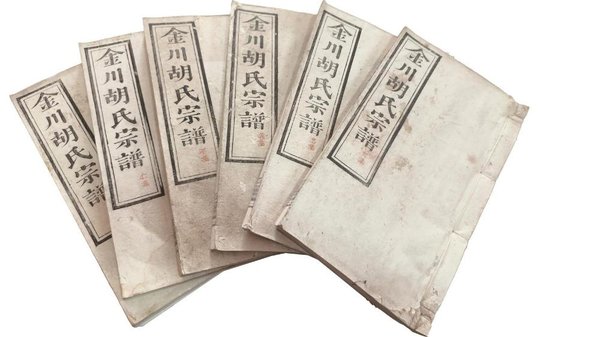 金川胡氏宗譜
金川胡氏宗譜
金川胡氏宗譜
金川胡氏宗譜
金川胡氏宗譜
金川胡氏宗譜